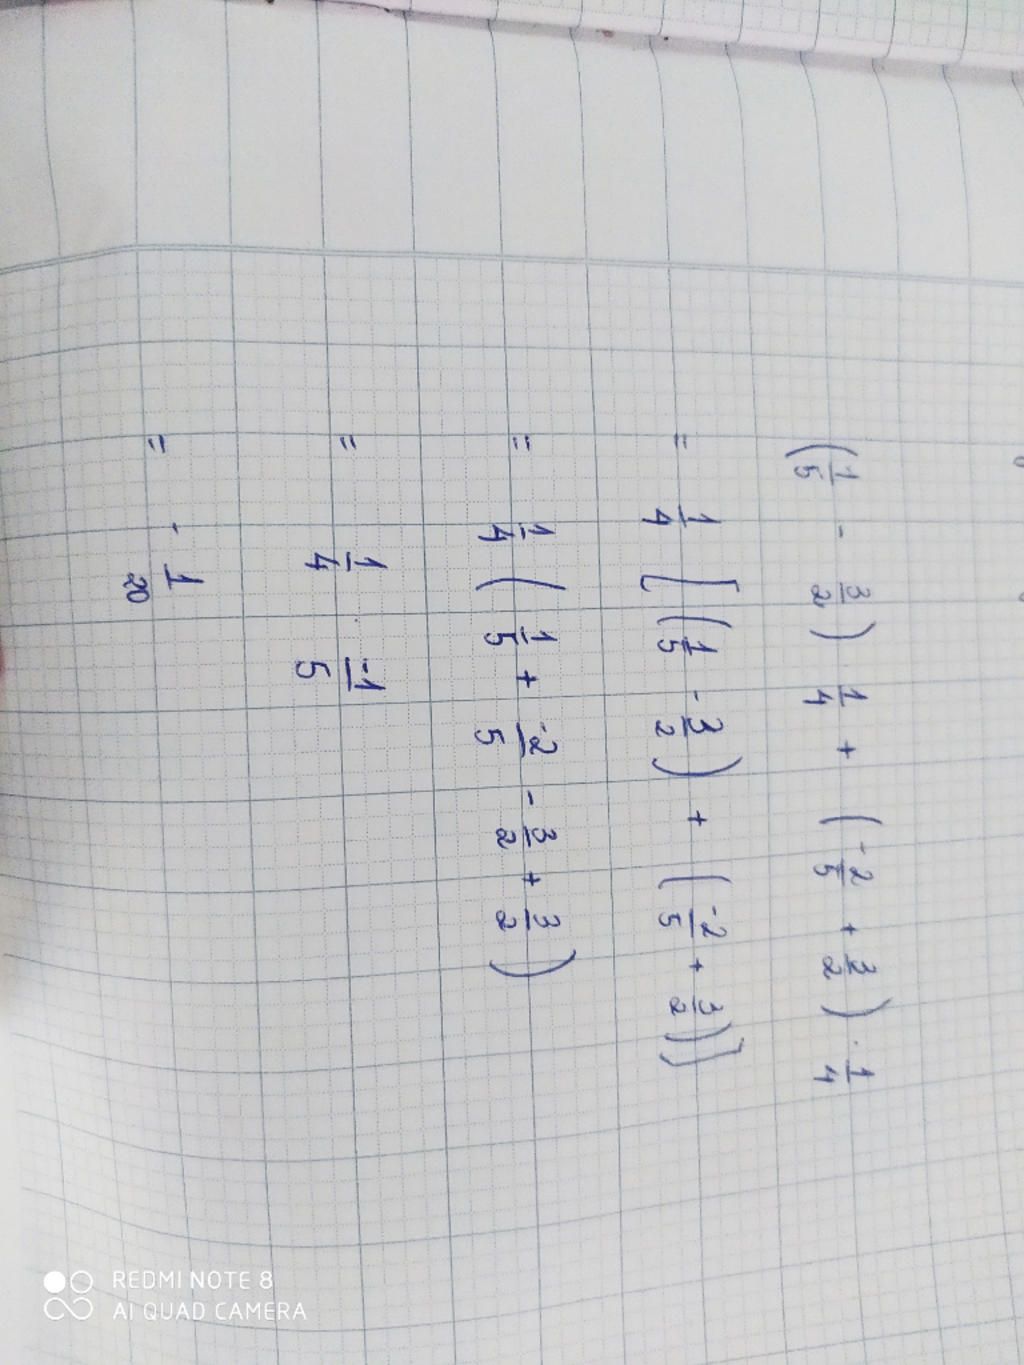 (1/5 - 3/2) 1/4 + (-2/5 + 3/2) . 1/4
= 1/4 [(1/5 - 3/2) + (-2/5 + 3/2)]
= 1/4 (1/5 + -2/5 - 3/2 + 3/2)
= 1/4 . -1/5
= - 1/20
REDMI NOTE 8
AI QUAD CAMERA